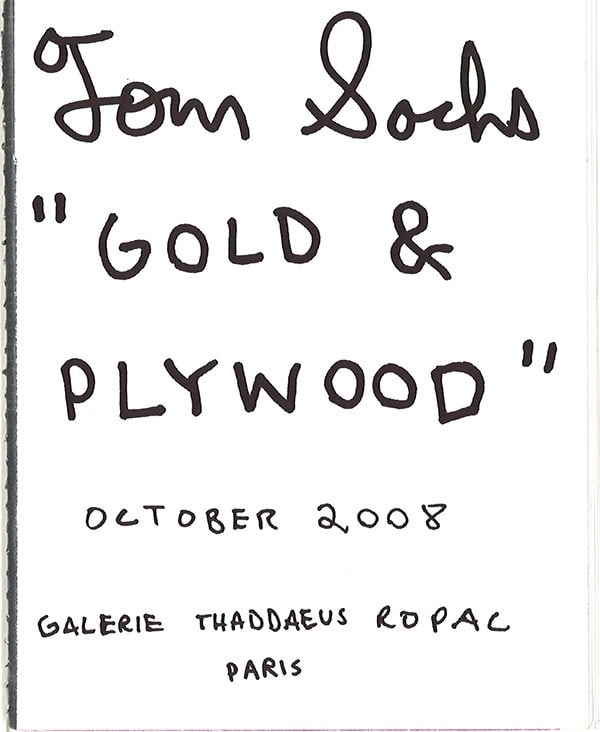 Tom Sachs
"GOLD &
PLYWOOD"
OCTOBER 2008
GALERIE THADDAEUS ROPAC
PARIS